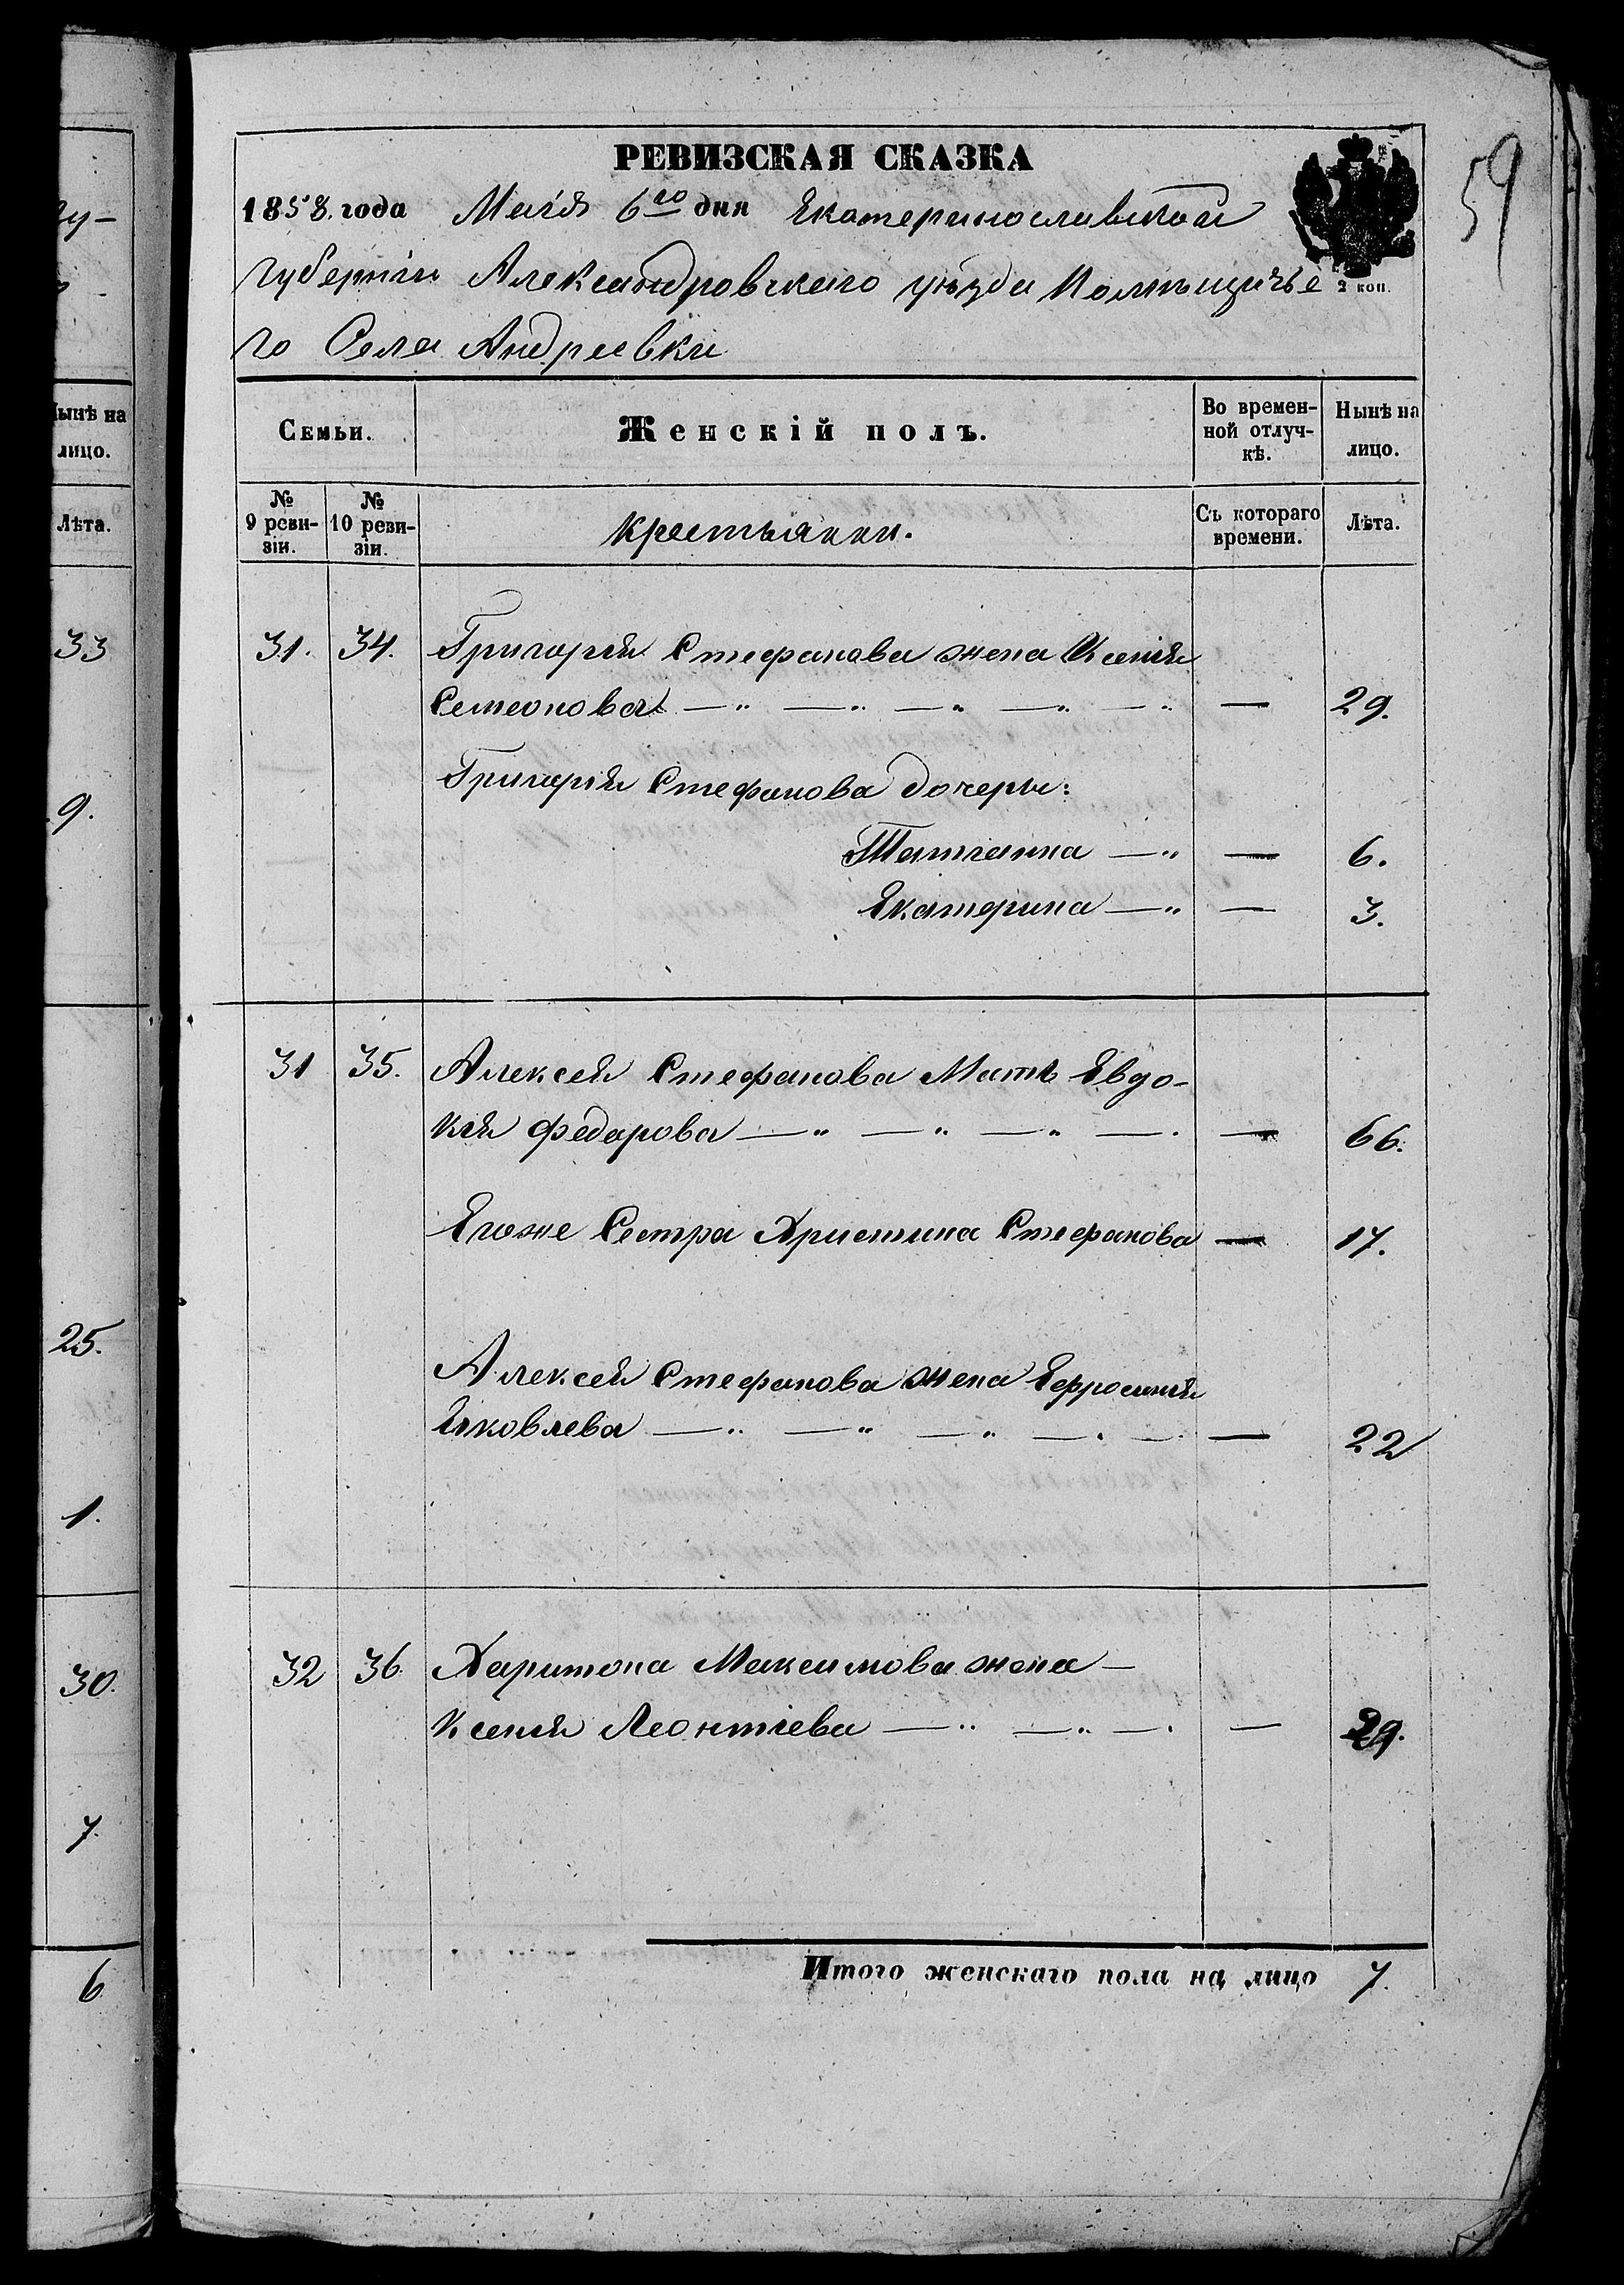 59
РЕВИЗСКАЯ СКАЗКА
1858. года Маія 6го дня Екатеринославской
губерніи Александровскаго уѣзда Помѣщичье
2 коп.
го Села Андреевки
Семьи.
Женскій полъ.
Во времен-
ной отлуч-
кѣ.
Нынѣ на
лицо.
№
9 реви-
зіи.
№
10 реви-
зіи.
крестьянки.
Съ котораго
времени.
Лѣта.
31. 34. Григорія Стефанова жена Ксенія
Семеонова — „ — „ — „ — „ — „ — 29.
Григорія Стефанова дочеры:
Татіанна — „ — 6.
Екатерина — „ — 3.
31 35. Алексея Стефанова Мать Евдо-
кія Федорова — „ — „ — „ — . — 66.
Егоже Сестра Христина Стефанова — 17.
Алексея Стефанова жена Ефросинія
Яковлева — „ — „ — „ — . — . — 22
32 36. Харитона Максимова жена —
Ксенія Леонтіева — „ — „ — . — 29.
Итого женскаго пола на лицо 7.
Нынѣ на
лицо.
Лѣта.
33
9.
25.
1.
30.
7.
6